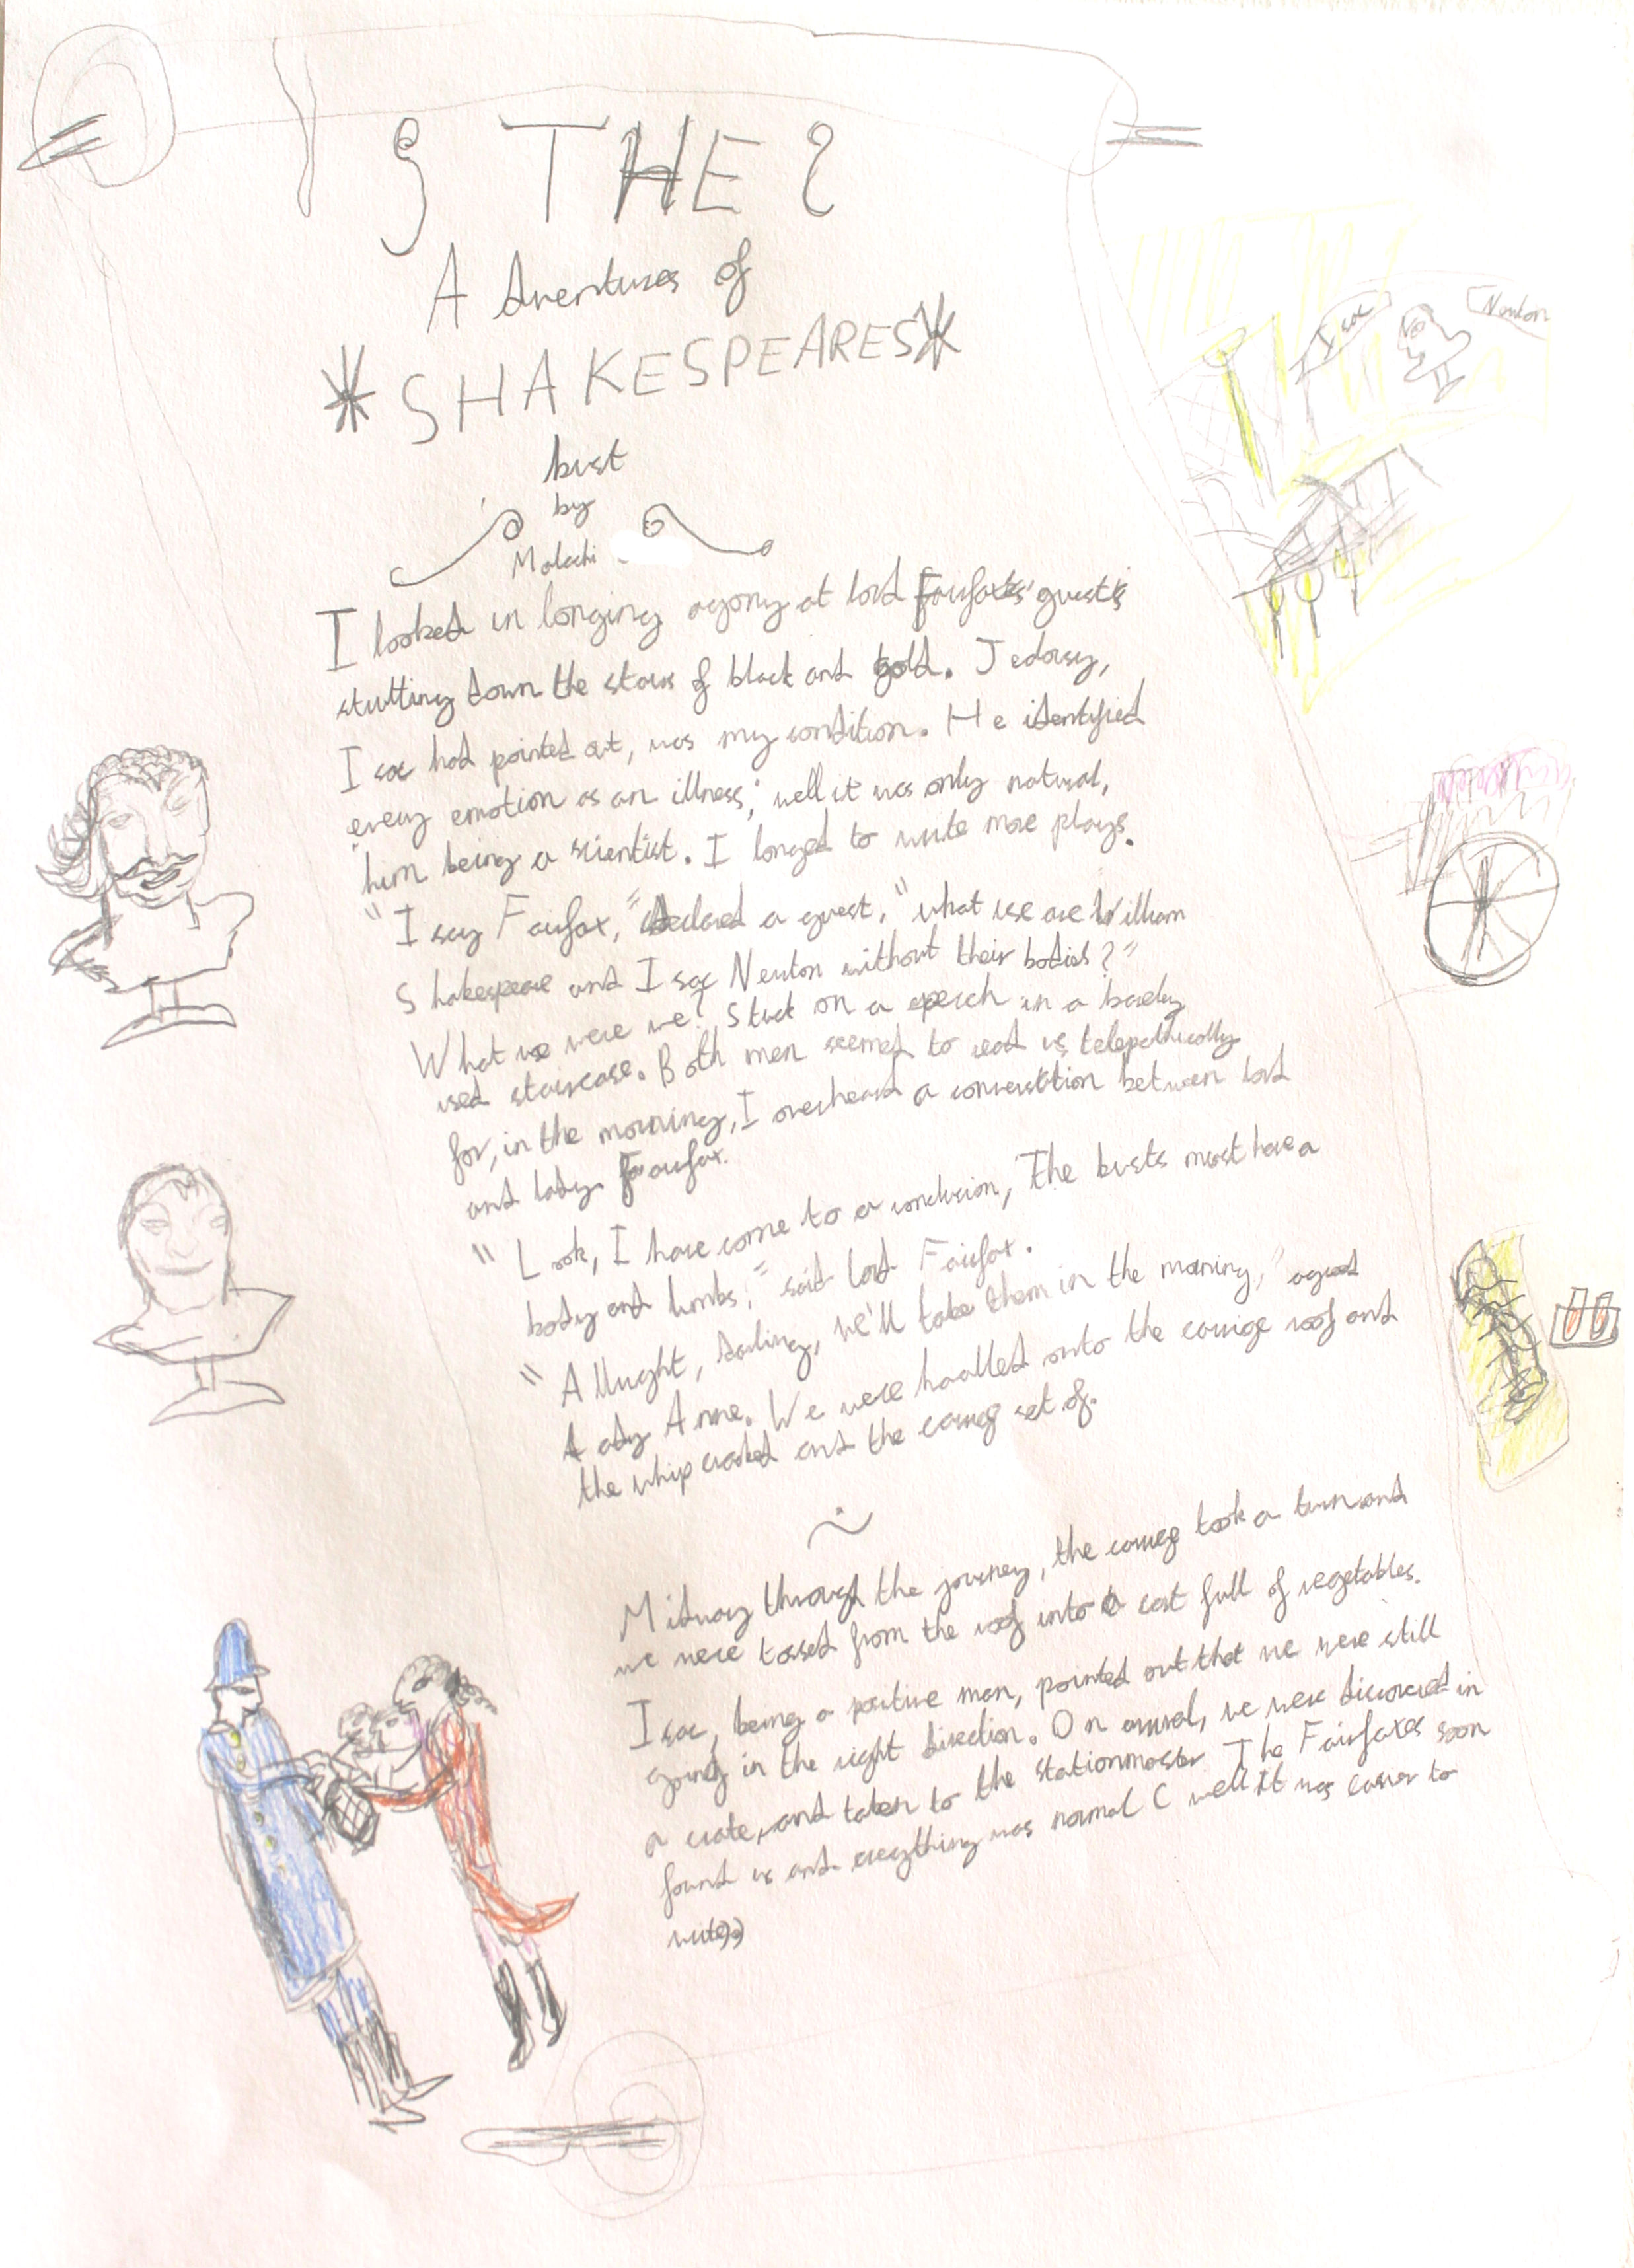 THE
Adventures of
SHAKESPEARES
bust
by
Malachi
I looked in longing agony at lord Fairfaxes' guests
strutting down the stairs of black and gold. Jealousy,
Isac had pointed out, was my condition. He identified
every emotion as an illness; well it was only natural,
him being a scientist. I longed to write more plays.
"I say Fairfax," declared a guest, "what use are William
Shakespeare and Isac Newton without their bodies?"
What use were we? Stuck on a perch in a barely
used staircase. Both men seemed to read us telepathically
for, in the morning, I overheard a conversation between lord
and lady Fairfax.
"Look, I have come to a conclusion, The busts must have a
body and limbs," said lord Fairfax.
"Allright, darling, we'll take them in the morning," agreed
Lady Anne. We were haulled onto the carrige roof and
the whip cracked and the carrige set of.
Midway through the journey, the carrige took a turn and
we were tossed from the roof into a cart full of vegetables.
Isac, being a positive man, pointed out that we were still
going in the right direction. On arrival, we were discovered in
a crate, and taken to the stationmaster. The Fairfaxes soon
found us and everything was normal ( well it was easier to
write))
Isac
Newton